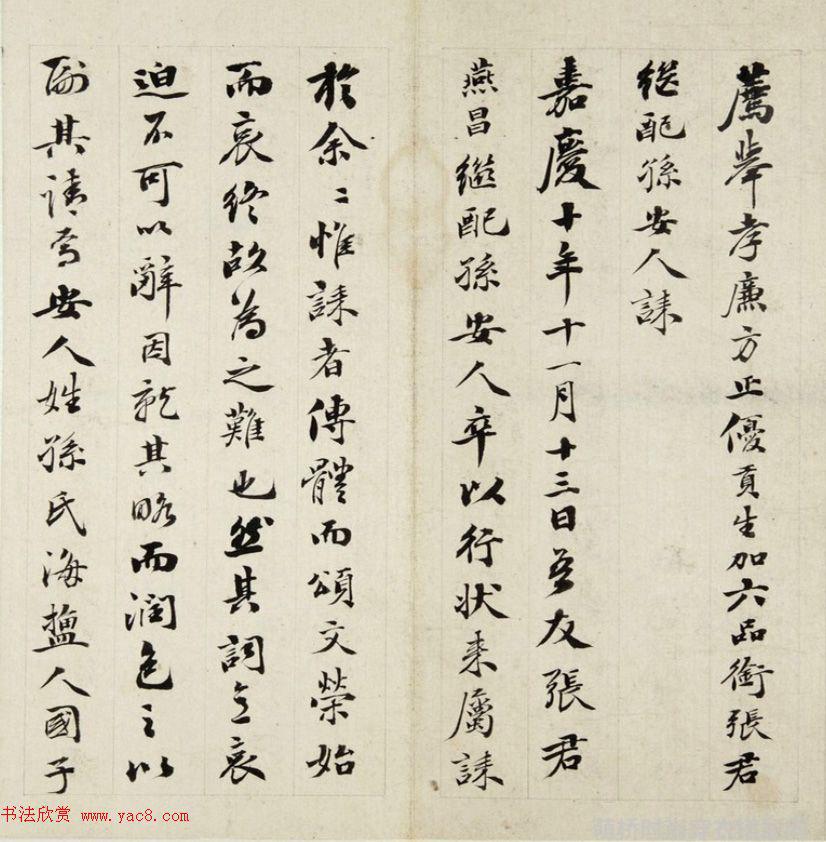 薦舉孝廉方正優貢生加六品銜張君
繼配孫安人誄
嘉慶十年十一月十三日吾友張君
燕昌繼配孫安人卒以行状来屬誄
於余〻惟誄者傳體而頌文榮始
而哀終故為之難也然其詞意哀
迫不可以辭因就其略而潤色之以
副其請焉安人姓孫氏海鹽人國子
书法欣赏 www.yac8.com